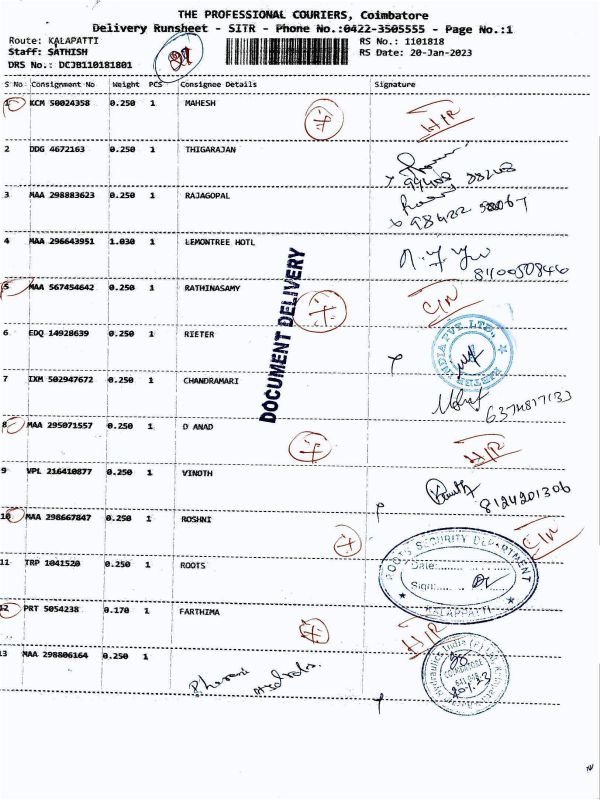 THE PROFESSIONAL COURIERS, Coimbatore
Delivery Runsheet - SITR - Phone No.:0422-3505555 - Page No.:1
Route: KALAPATTI
Staff: SATHISH
DRS No.: DCJB110181801
RS No.: 1101818
RS Date: 20-Jan-2023
S No Consignment No Weight PCS Consignee Details Signature
1 KCM 50024358 0.250 1 MAHESH
2 DDG 4672163 0.250 1 THIGARAJAN
3 MAA 298883623 0.250 1 RAJAGOPAL
4 MAA 296643951 1.030 1 LEMONTREE HOTL
8110050846
5 MAA 567454642 0.250 1 RATHINASAMY
DOCUMENT DELIVERY
6 EDQ 14928639 0.250 1 RIETER
7 IXM 502947672 0.250 1 CHANDRAMARI
8 MAA 295071557 0.250 1 D ANAD
9 VPL 216410877 0.250 1 VINOTH
8124201306
10 MAA 298667847 0.250 1 ROSHNI
11 TRP 1041520 0.250 1 ROOTS
ROOTS SECURITY DEPARTMENT
Date:
Sign:
KALAPPATTI
12 PRT 5054238 0.170 1 FARTHIMA
13 MAA 298806164 0.250 1